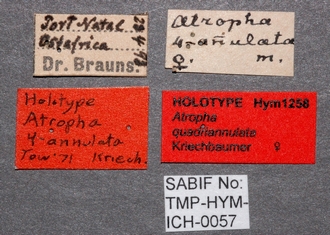 Port Natal
Ostafrica
Dr. Brauns.
Atropha
4-añulata
♀. m.
Holotype
Atropha
4-annulata
Tow '71 Kriech.
HOLOTYPE Hym1258
Atropha
quadriannulata
Kriechbaumer ♀
SABIF No:
TMP-HYM-
ICH-0057